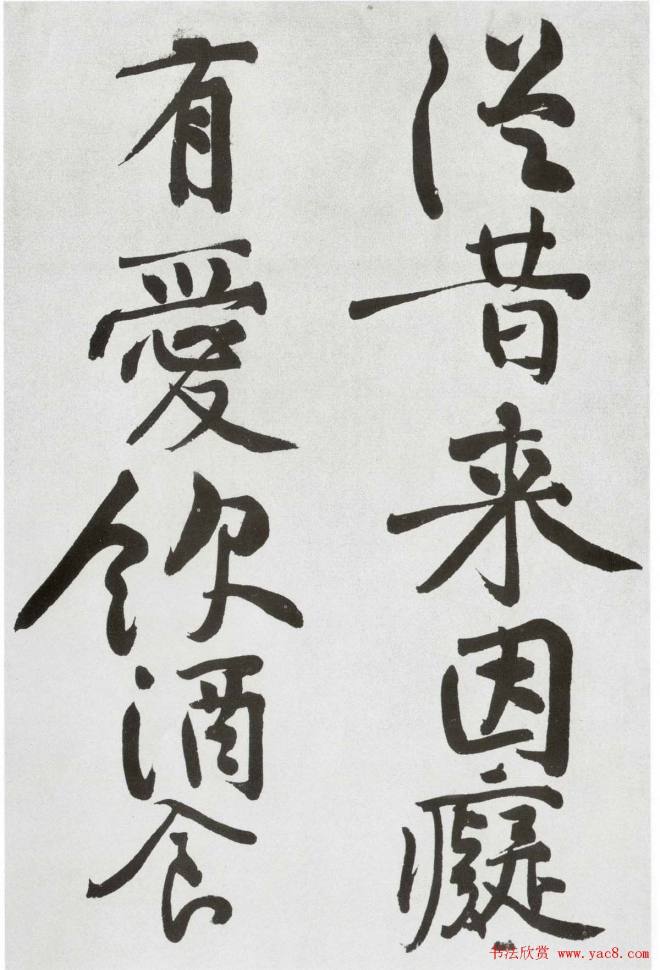 從昔来因癡
有愛飲酒食
书法欣赏 www.yac8.com